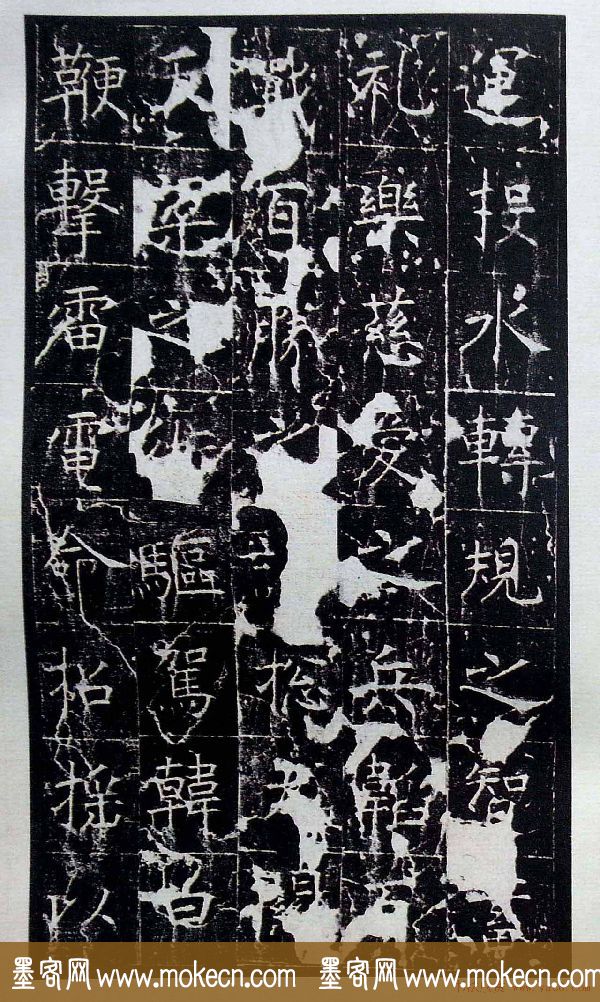 運投水轉規之智
礼樂慈愛之兵韜
戰百勝之捴
天梁之術驅駕韓白
鞭撃雷電命招搖以
墨客网 www.mokecn.com 墨客网 www.mokecn.com